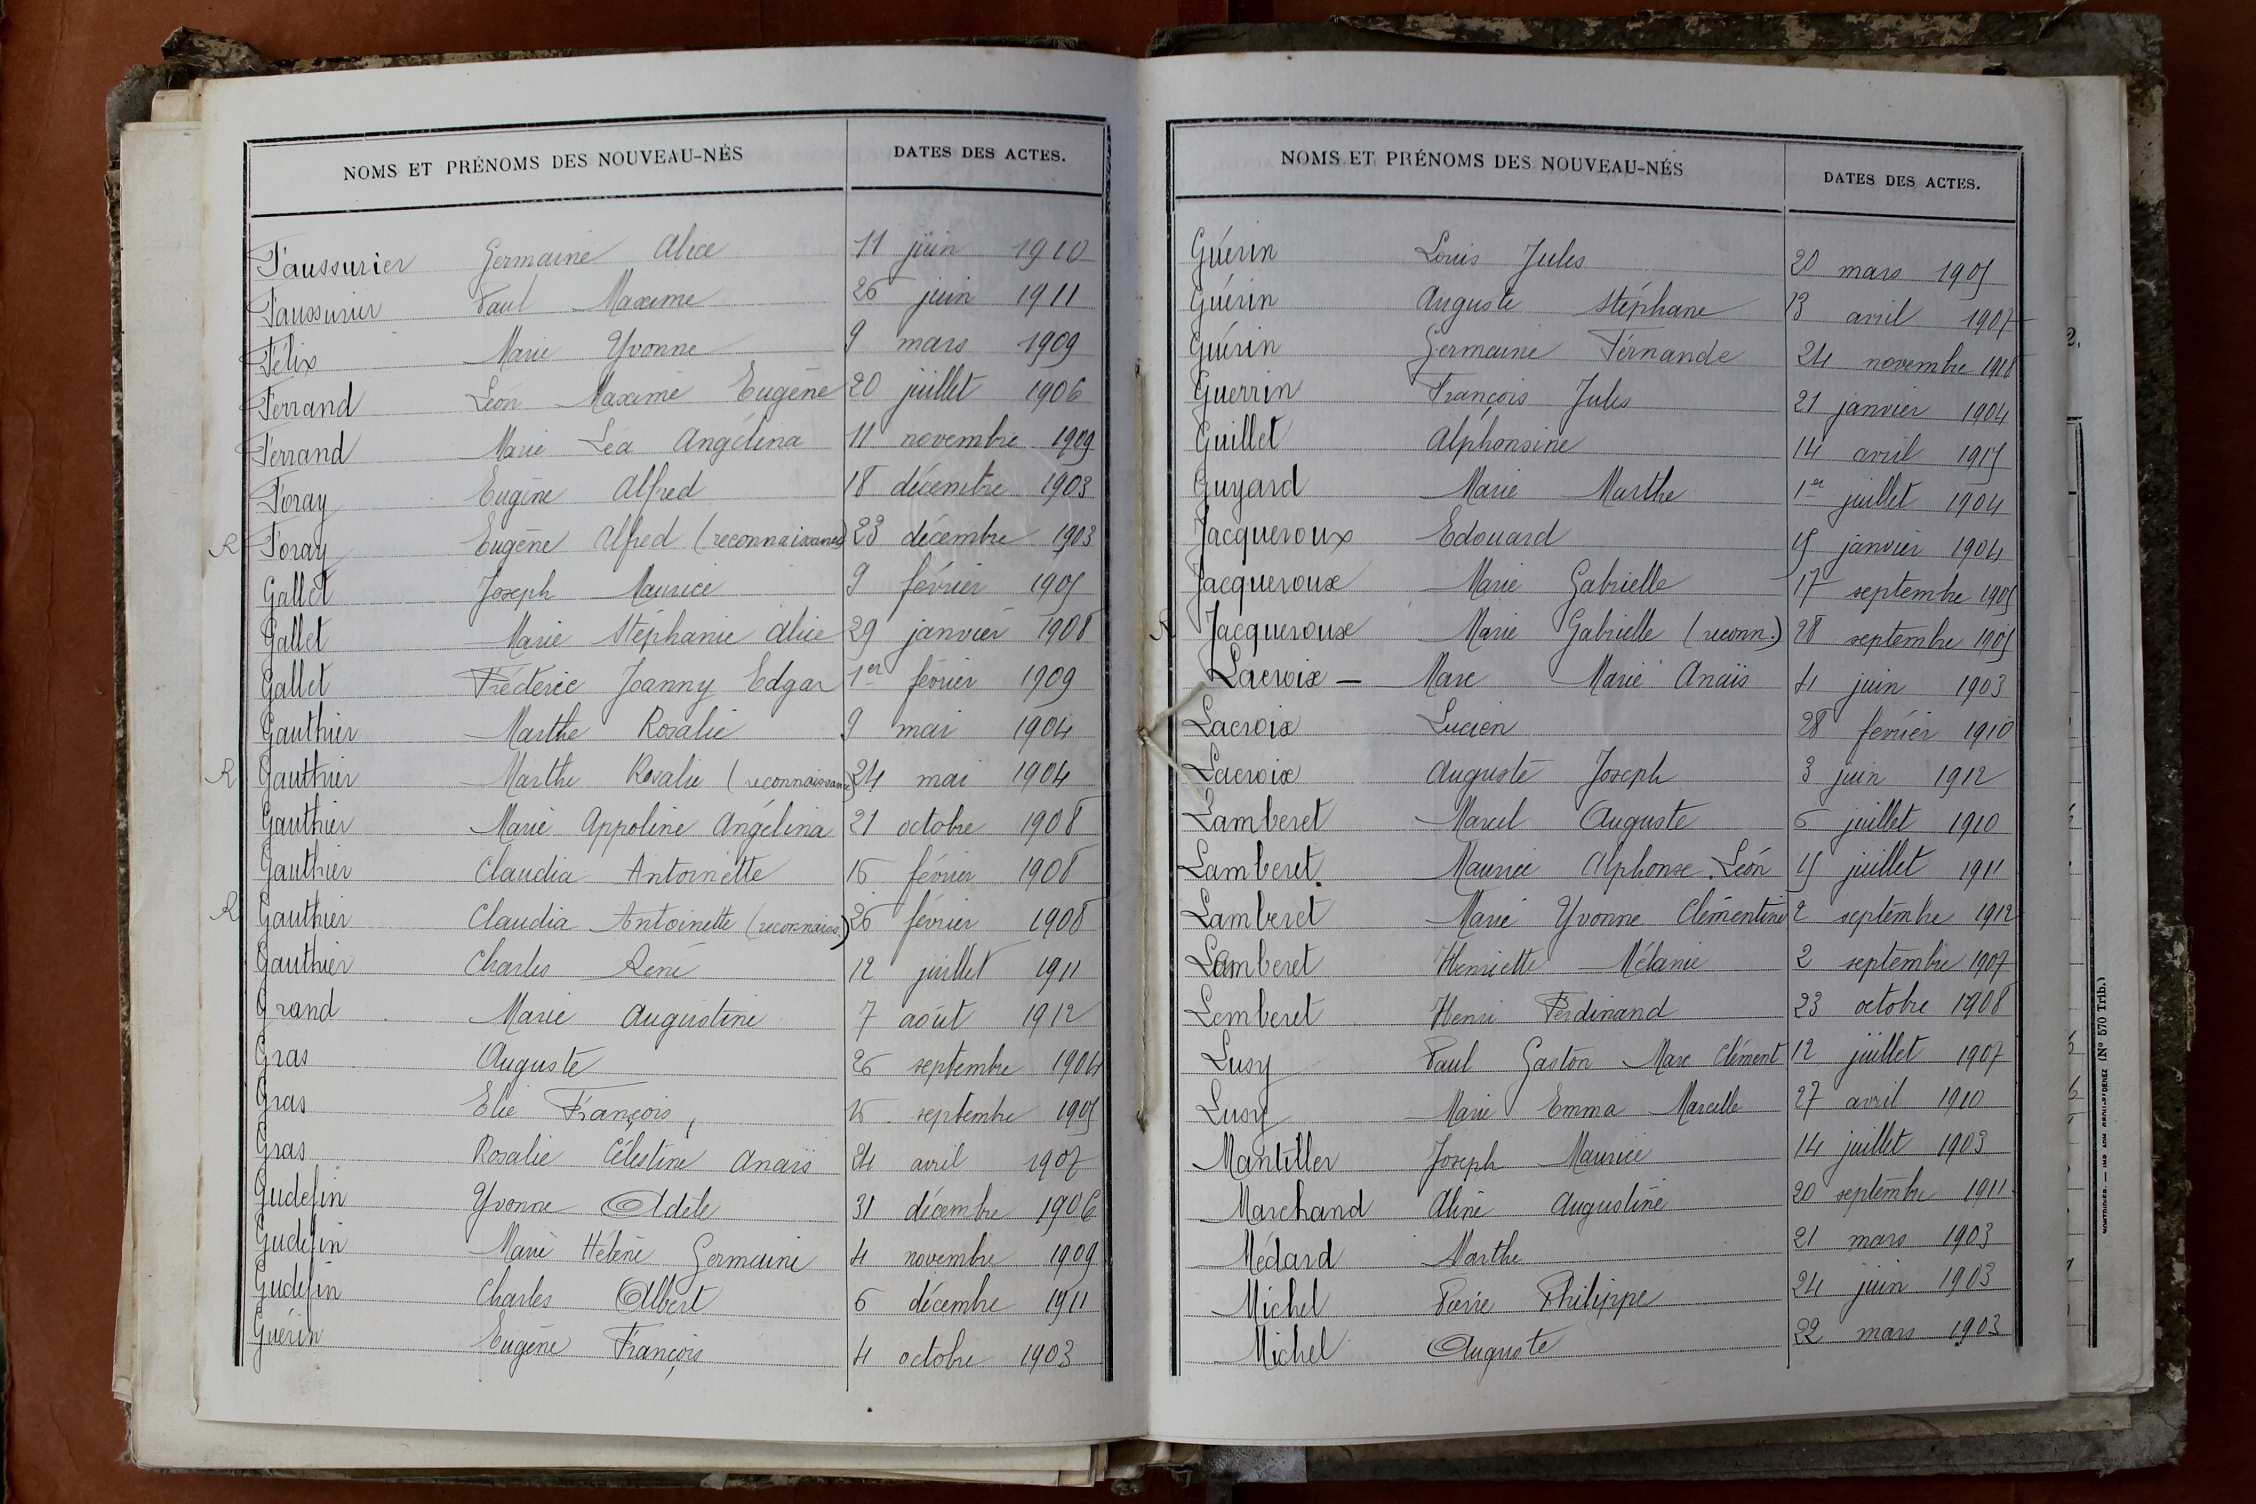 NOMS ET PRÉNOMS DES NOUVEAU-NÉS DATES DES ACTES.
Faussurier Germaine Alice 11 juin 1910
Faussurier Paul Maxime 26 juin 1911
Félix Marie Yvonne 9 mars 1909
Ferrand Léon Maxime Eugène 20 juillet 1906
Ferrand Marie Léa Angélina 11 novembre 1909
Foray Eugène Alfred 18 décembre 1903
R Foray Eugène Alfred (reconnaissance) 23 décembre 1903
Gallet Joseph Maurice 9 février 1905
Gallet Marie Stéphanie Alice 29 janvier 1908
Gallet Fréderic Joanny Edgar 1er février 1909
Gauthier Marthe Rosalie 9 mai 1904
R Gauthier Marthe Rosalie (reconnaissance) 24 mai 1904
Gauthier Marie Appoline Angélina 21 octobre 1908
Gauthier Claudia Antoinette 16 février 1908
R Gauthier Claudia Antoinette (reconnaiss.) 26 février 1908
Gauthier Charles René 12 juillet 1911
Grand Marie Augustine 7 août 1912
Gras Auguste 26 septembre 1904
Gras Elie François, 16 septembre 1905
Gras Rosalie Célestine Anaïs 24 avril 1907
Gudefin Yvonne Adèle 31 décembre 1906
Gudefin Marie Hélène Germaine 4 novembre 1909
Gudefin Charles Albert 6 décembre 1911
Guérin Eugène François 4 octobre 1903
NOMS ET PRÉNOMS DES NOUVEAU-NÉS DATES DES ACTES.
Guérin Louis Jules 20 mars 1905
Guérin Auguste Stéphane 13 avril 1907
Guérin Germaine Fernande 24 novembre 1908
Guerrin François Jules 21 janvier 1904
Guillet Alphonsine 14 avril 1905
Guyard Marie Marthe 1er juillet 1904
Jacqueroux Edouard 15 janvier 1904
Jacqueroux Marie Gabrielle 17 septembre 1905
R Jacqueroux Marie Gabrielle (reconn.) 28 septembre 1905
Lacroix — Marc Marie Anaïs 4 juin 1903
Lacroix Lucien 28 février 1910
Lacroix Auguste Joseph 3 juin 1912
Lamberet Marcel Auguste 6 juillet 1910
Lamberet Maurice Alphonse Léon 15 juillet 1911
Lamberet Marie Yvonne Clémentine 2 septembre 1912
Lamberet Henriette Mélanie 2 septembre 1907
Lemberet Henri Ferdinand 23 octobre 1908
Lusy Paul Gaston Marc Clément 12 juillet 1907
Lusy Marie Emma Marcelle 27 avril 1910
Mantiller Joseph Maurice 14 juillet 1903
Marchand Aline Augustine 20 septembre 1911
Médard Marthe 21 mars 1903
Michel Pierre Philippe 24 juin 1903
Michel Auguste 22 mars 1903
(N° 570 Trib.)